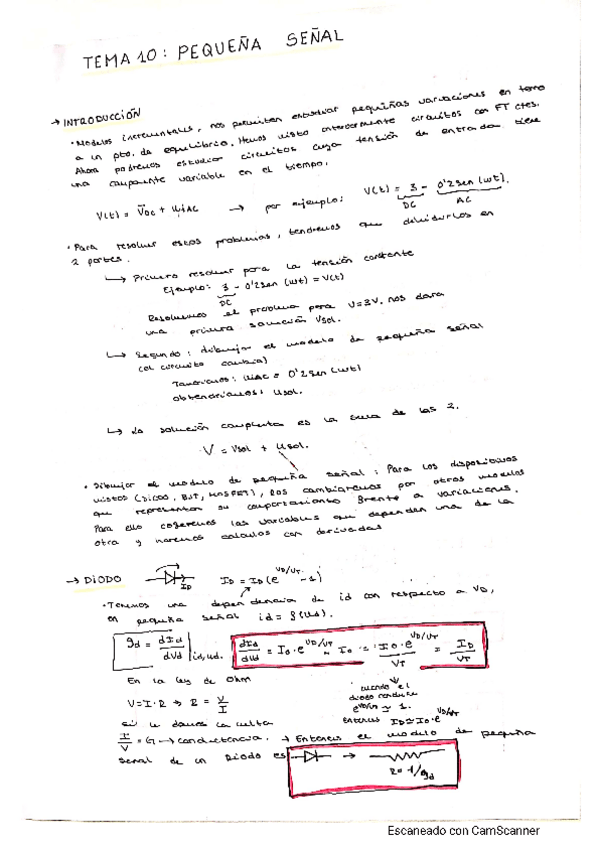 TEMA 10: PEQUEÑA SEÑAL
→ INTRODUCCIÓN
• Modelos incrementales, nos permiten estudiar pequeñas variaciones en torno
a un pto. de equilibrio. Hemos visto anteriormente circuitos con FT ctes.
Ahora podremos estudiar circuitos cuya tensión de entrada tiene
una componente variable en el tiempo.
V(t) = 3 - 0'2sen(wt).
V(t) = VDC + → por ejemplo:
DC AC
• Para resolver estos problemas, tendremos que dividirlos en
2 partes.
↳ Primero resolver para la tensión constante
Ejemplo: 3 - 0'2sen(wt) = V(t)
DC
Resolvemos el problema para V=3V. nos dara
una primera solución Vsol.
↳ Segundo: dibujar el modelo de pequeña señal
(el circuito cambia)
Tendríamos: = 0'2sen(wt)
obtendríamos: usol.
↳ La solución completa es la suma de las 2.
V = Vsol + usol.
• Dibujar el modelo de pequeña señal: Para los dispositivos
vistos (diodo, BJT, MOSFET), los cambiaremos por otros modelos
que representan su comportamiento frente a variaciones.
Para ello cogeremos las variables que dependen una de la
otra y haremos calculos con derivadas
→ DIODO ID ID = I0(e^VD/VT - 1)
• Tenemos una dependencia de id con respecto a VD,
en pequeña señal id = f(ud).
gd = dId/dVd | id, ud. dId/dVd = I0·e^VD/VT = I0·e^VD/VT / VT = ID/VT
En la ley de Ohm
V=I·R ⇒ R = V/I
cuando el
diodo conduce
Entonces ID≃I0·e^VD/VT
si le damos la vuelta
I/V = G → conductancia. → Entonces el modelo de pequeña
señal de un Diodo es → R=1/gd
Escaneado con CamScanner